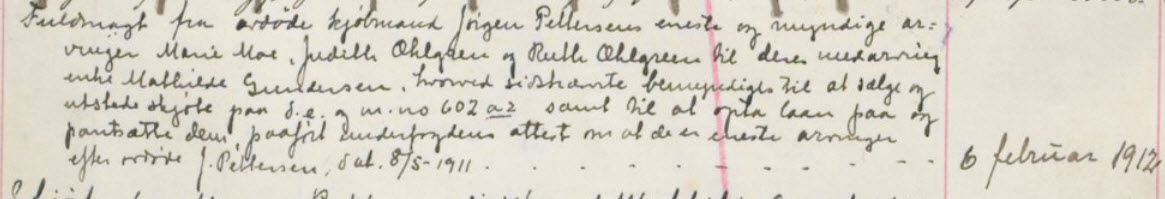 Fuldmagt fra avdøde kjøbmand Jørgen Pettersens eneste og myndige ar=
vinger Marie Moe, Judith Øhlgreen og Ruth Øhlgreen til deres medarving
enke Mathilde Gundersen, hvorved sidstnævnte bemyndiges til at sælge og
utstede skjøte paa d.e. g m.no 602 a2 samt til at opta laan paa og
pantsætte dem, paaført underfogdens attest om at de er eneste arvinger
efter avdøde J. Pettersen, dat. 8/5-1911.
6 februar 1912